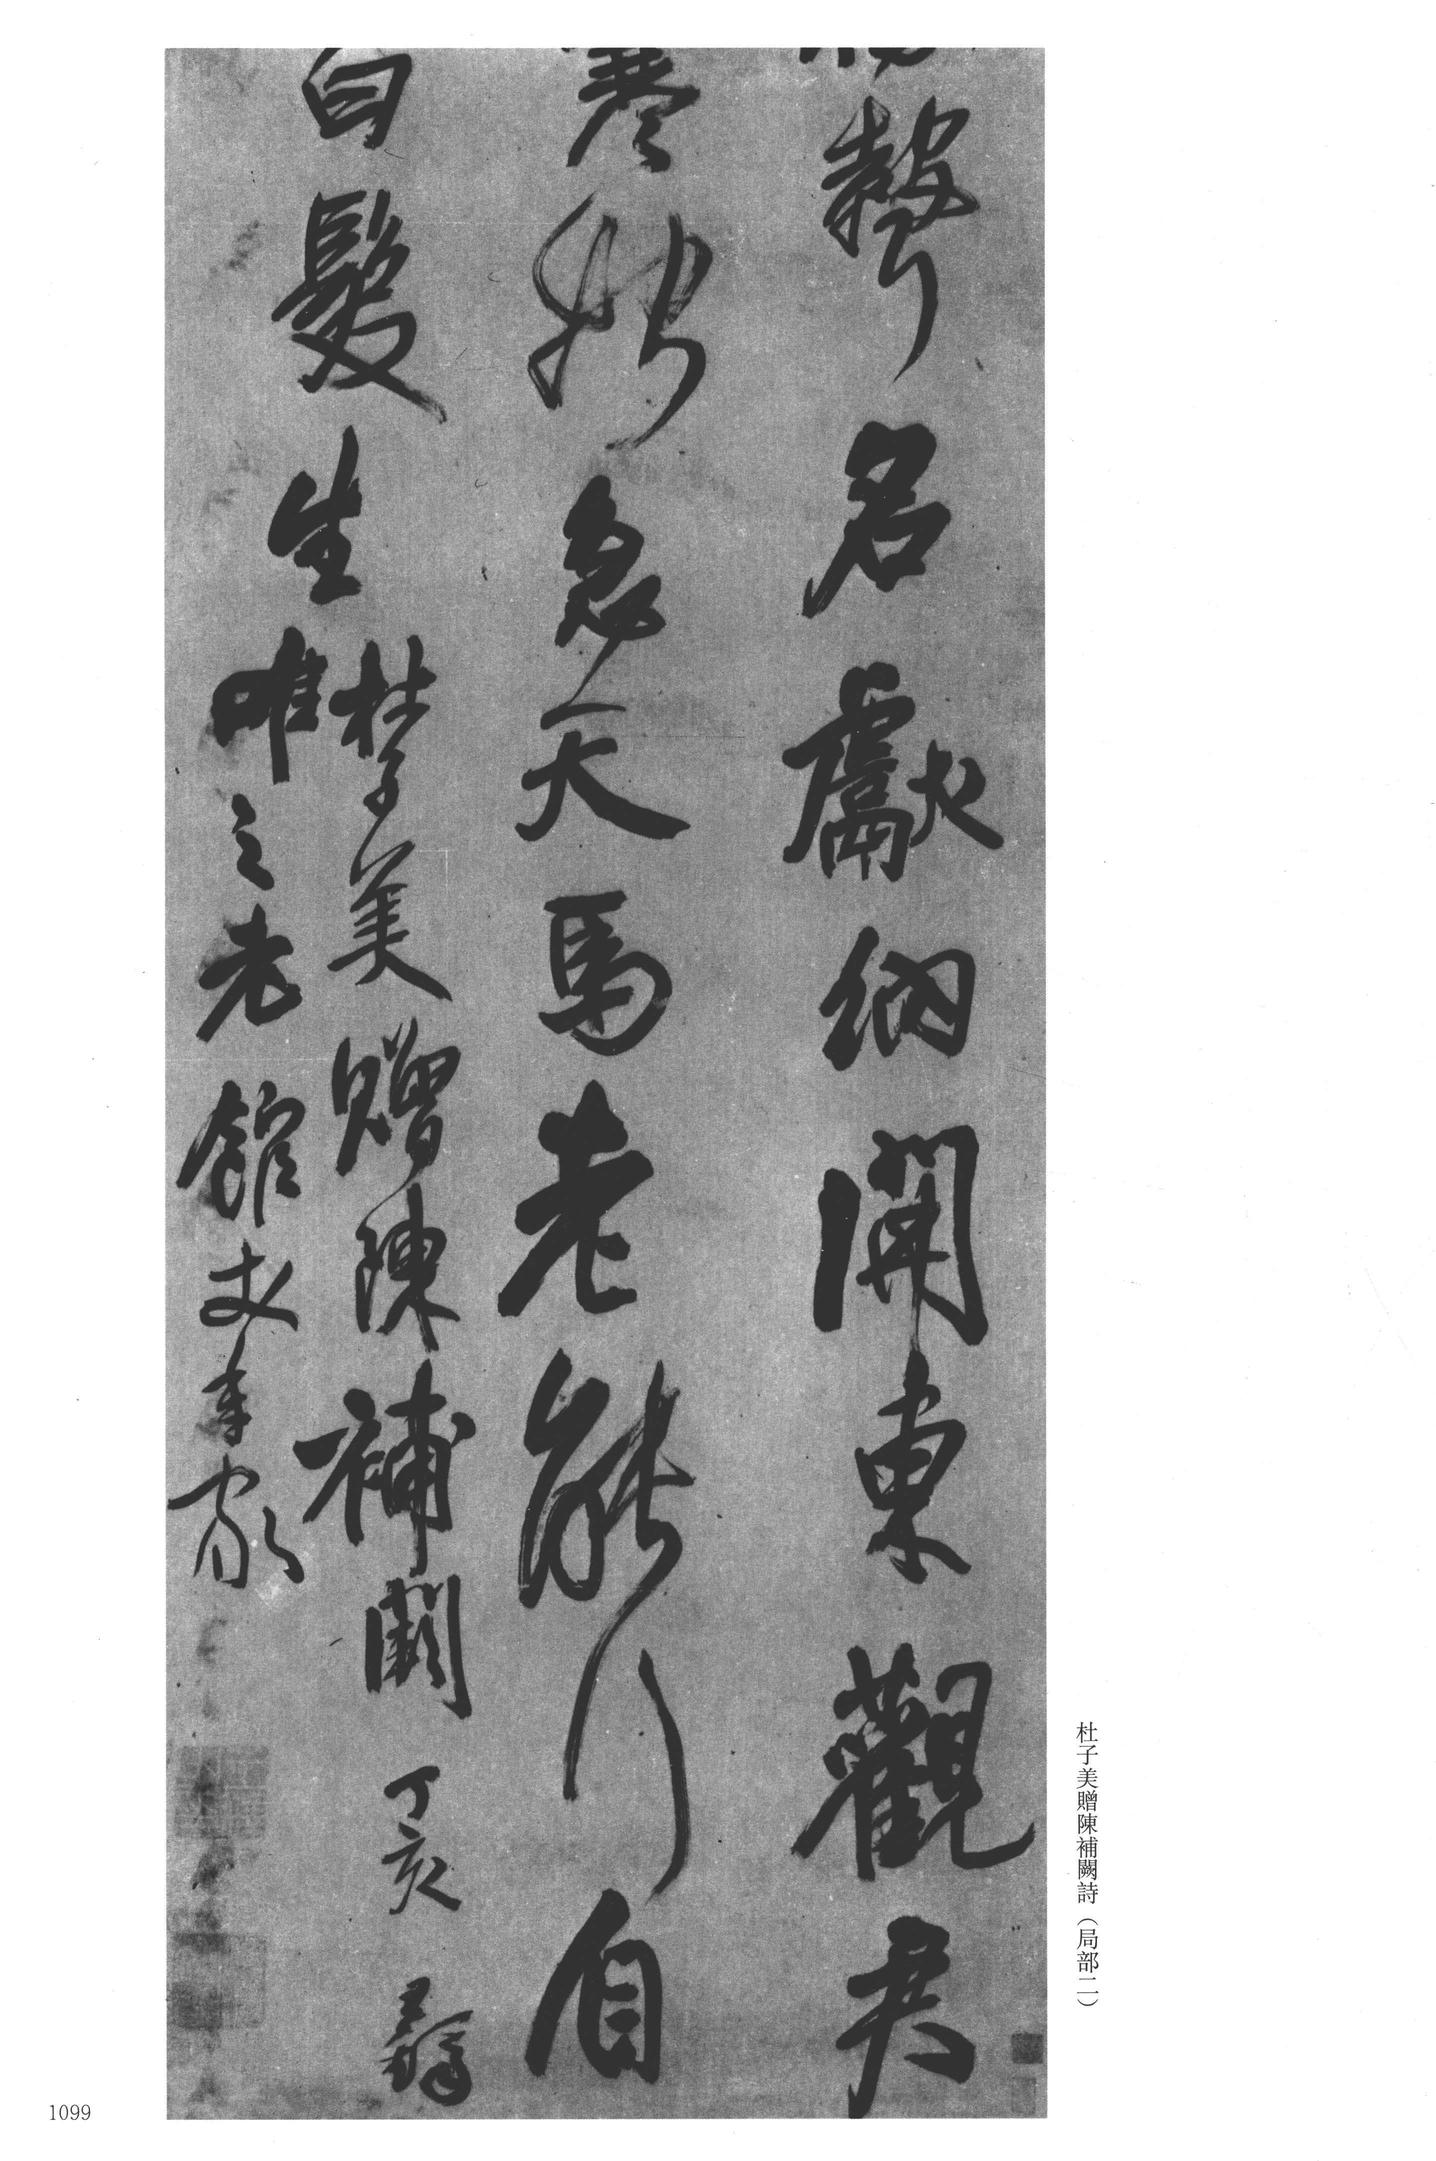 聲名獻納開東觀君
寒始急天馬老能行自
白髮生
杜子美贈陳補闕 丁亥 王鐸
唯之老館丈年家
杜子美贈陳補闕詩（局部二）
1099